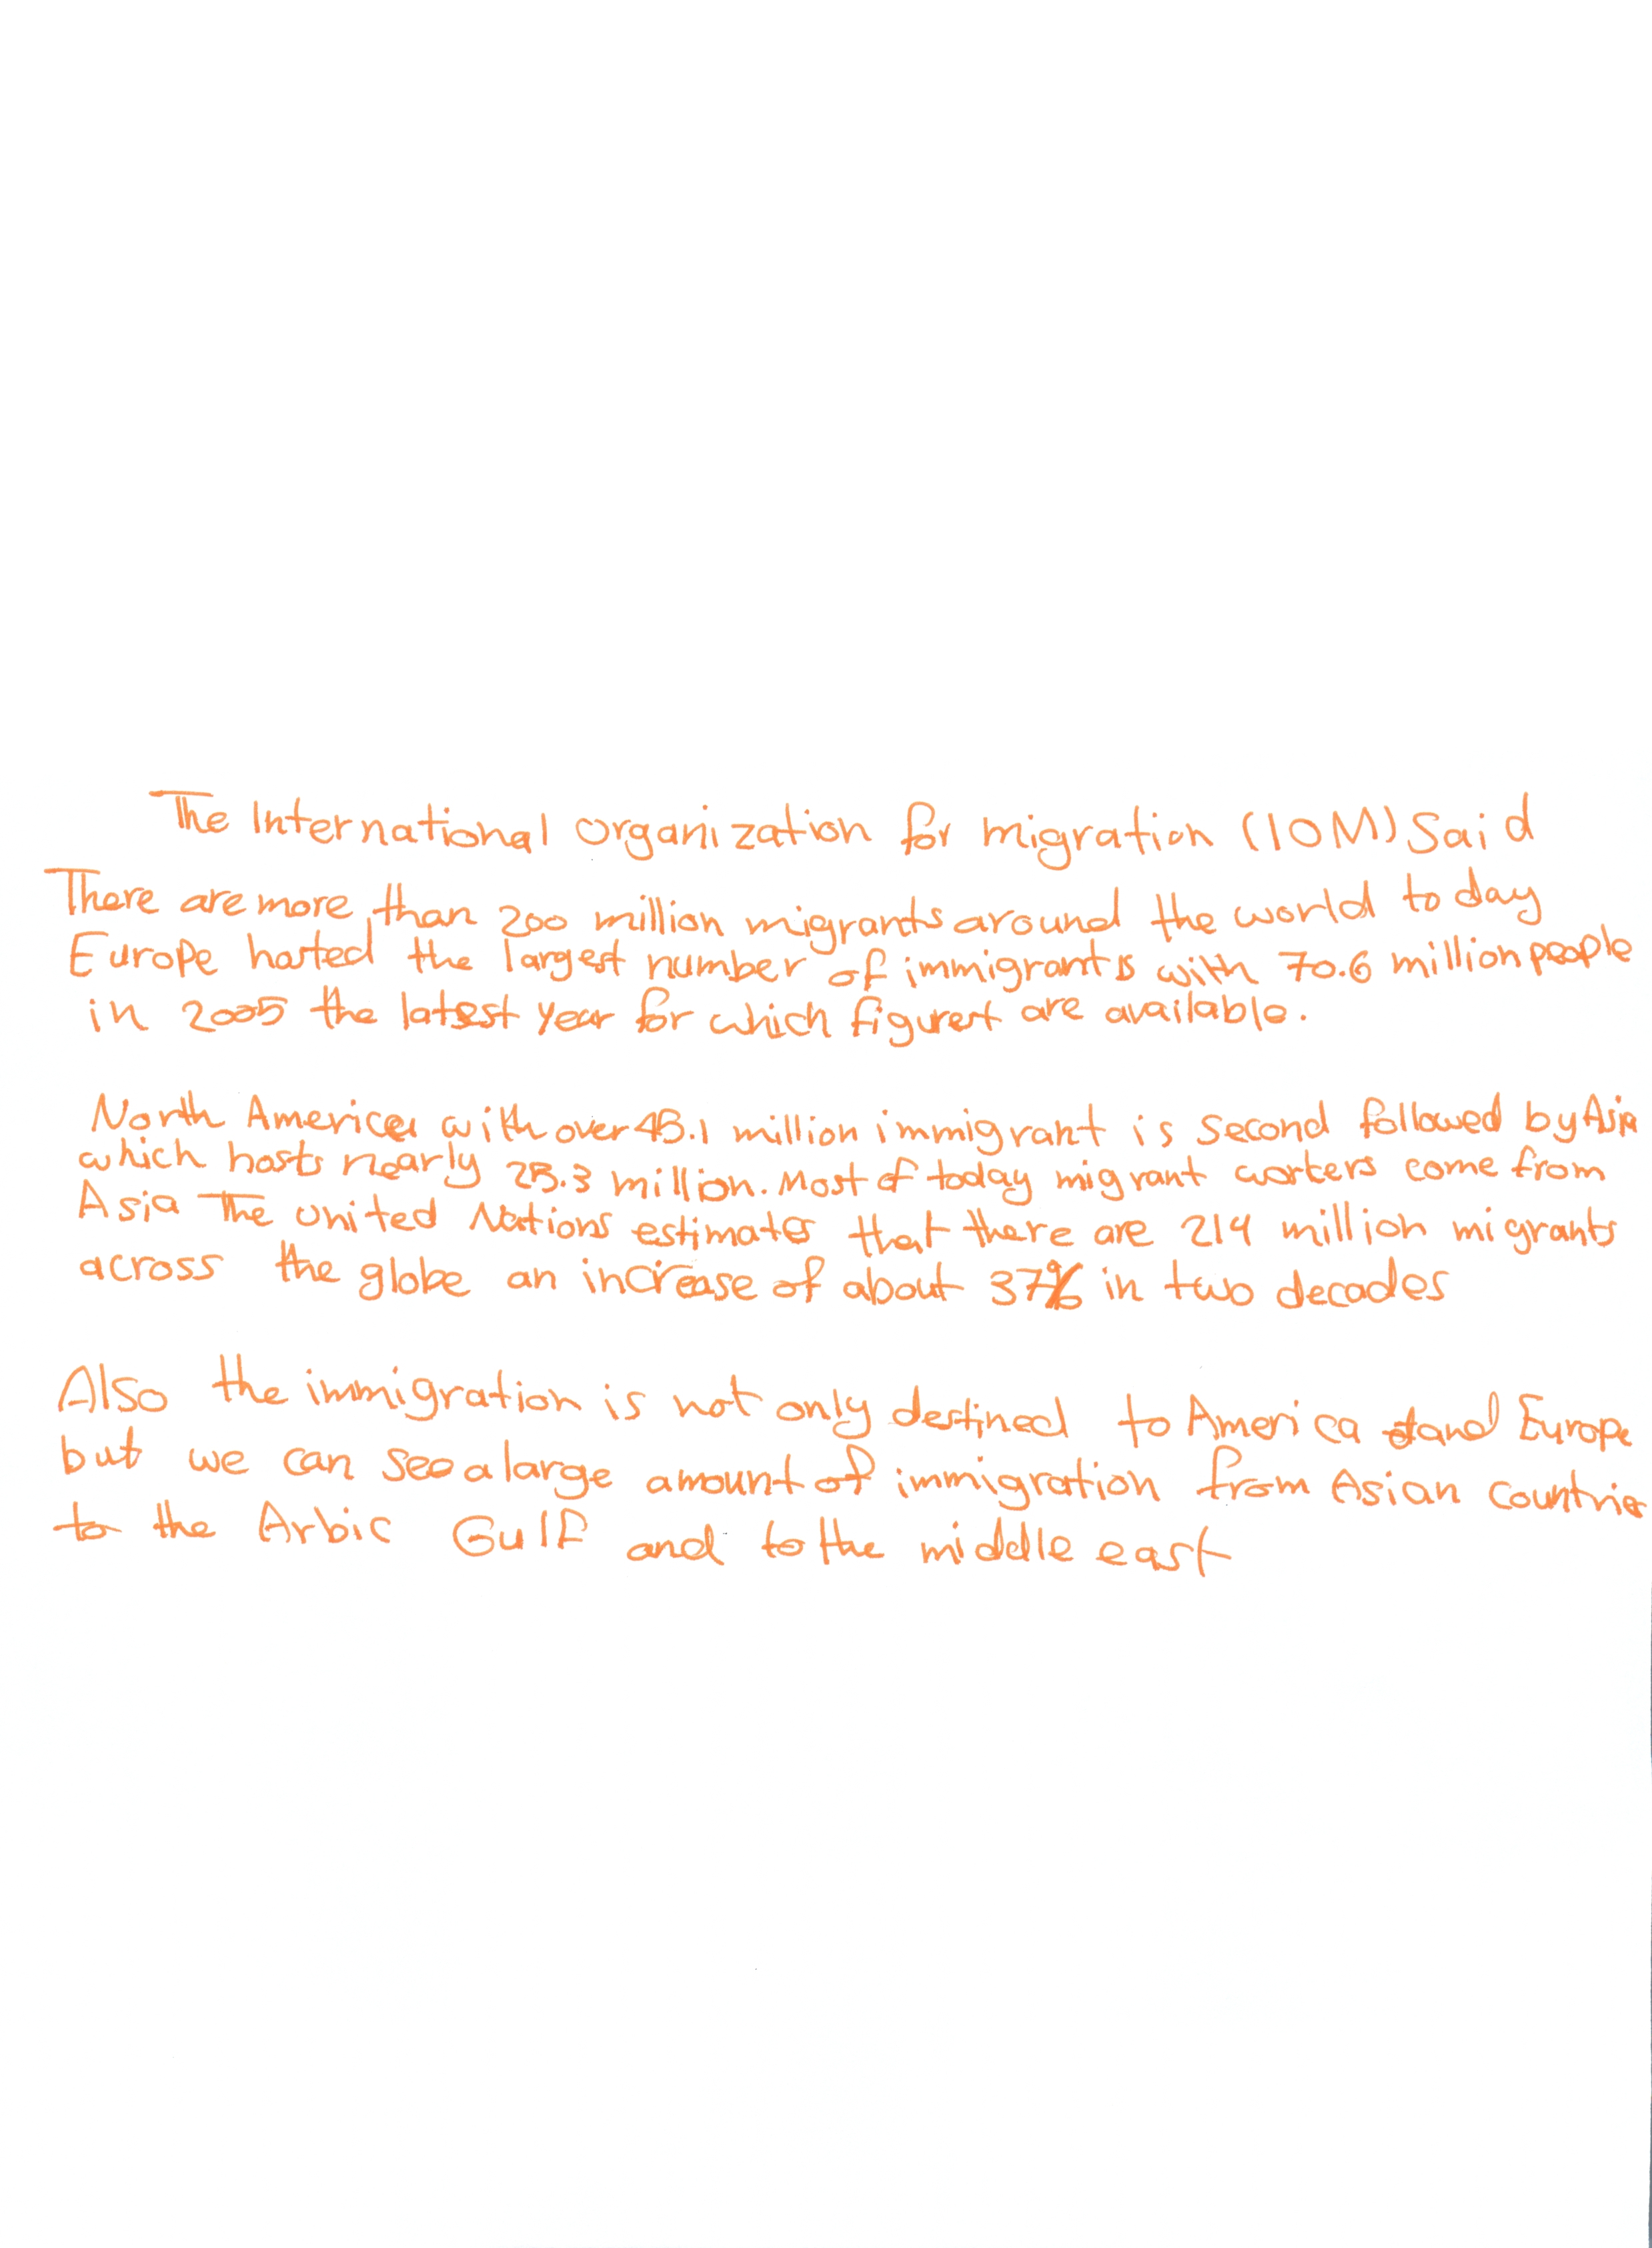 The International organization for migration (IOM) Said
There are more than 200 million migrants around the world to day
Europe hosted the largest number of immigrants with 70.6 million people
in 2005 the latest year for which figurest are available.
North America with over 45.1 million immigrant is second followed by Asia
which hosts nearly 25.3 million. Most of today migrant workers come from
Asia The united Nations estimates that there are 214 million migrants
across the globe an increase of about 37% in two decades
Also the immigration is not only destined to America and Europe
but we can see a large amount of immigration from Asian countrie
to the Arbic Gulf and to the middle east